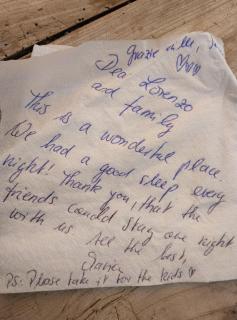 Grazie
Dear Lorenzo
and family
This is a wonderful place
We had a good sleep every
night! Thank you, that the
friends could stay one night
with us
All the best,
PS: Please take it for the kids ♡